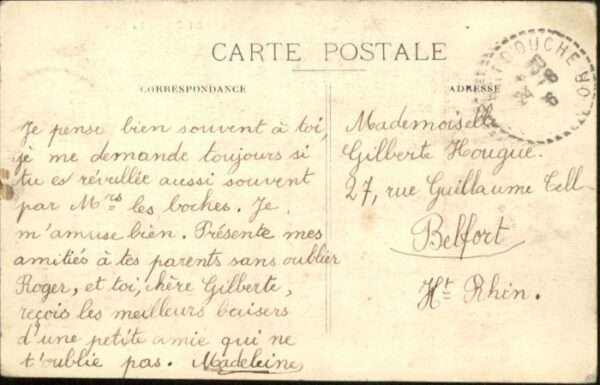 CARTE POSTALE
CORRESPONDANCE
ADRESSE
Je pense bien souvent à toi,
je me demande toujours si
tu es révullée aussi souvent
par Mrs les boches. Je
m'amuse bien. Présente mes
amitiés à tes parents sans oublier
Roger, et toi, chère Gilberte,
reçois les meilleurs baisers
d'une petite amie qui ne
t'oublie pas. Madeleine
Mademoiselle
Gilberte Hougue.
27, rue Guillaume Tell
Belfort
Ht Rhin.
D'OUCHE